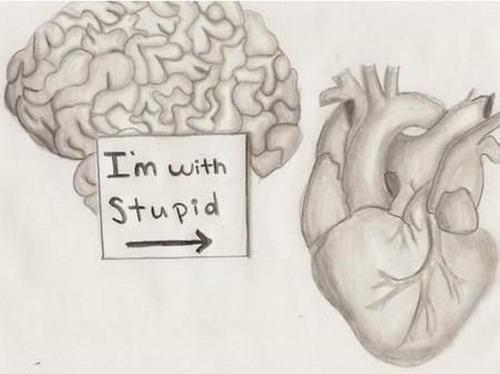 I'm with
Stupid